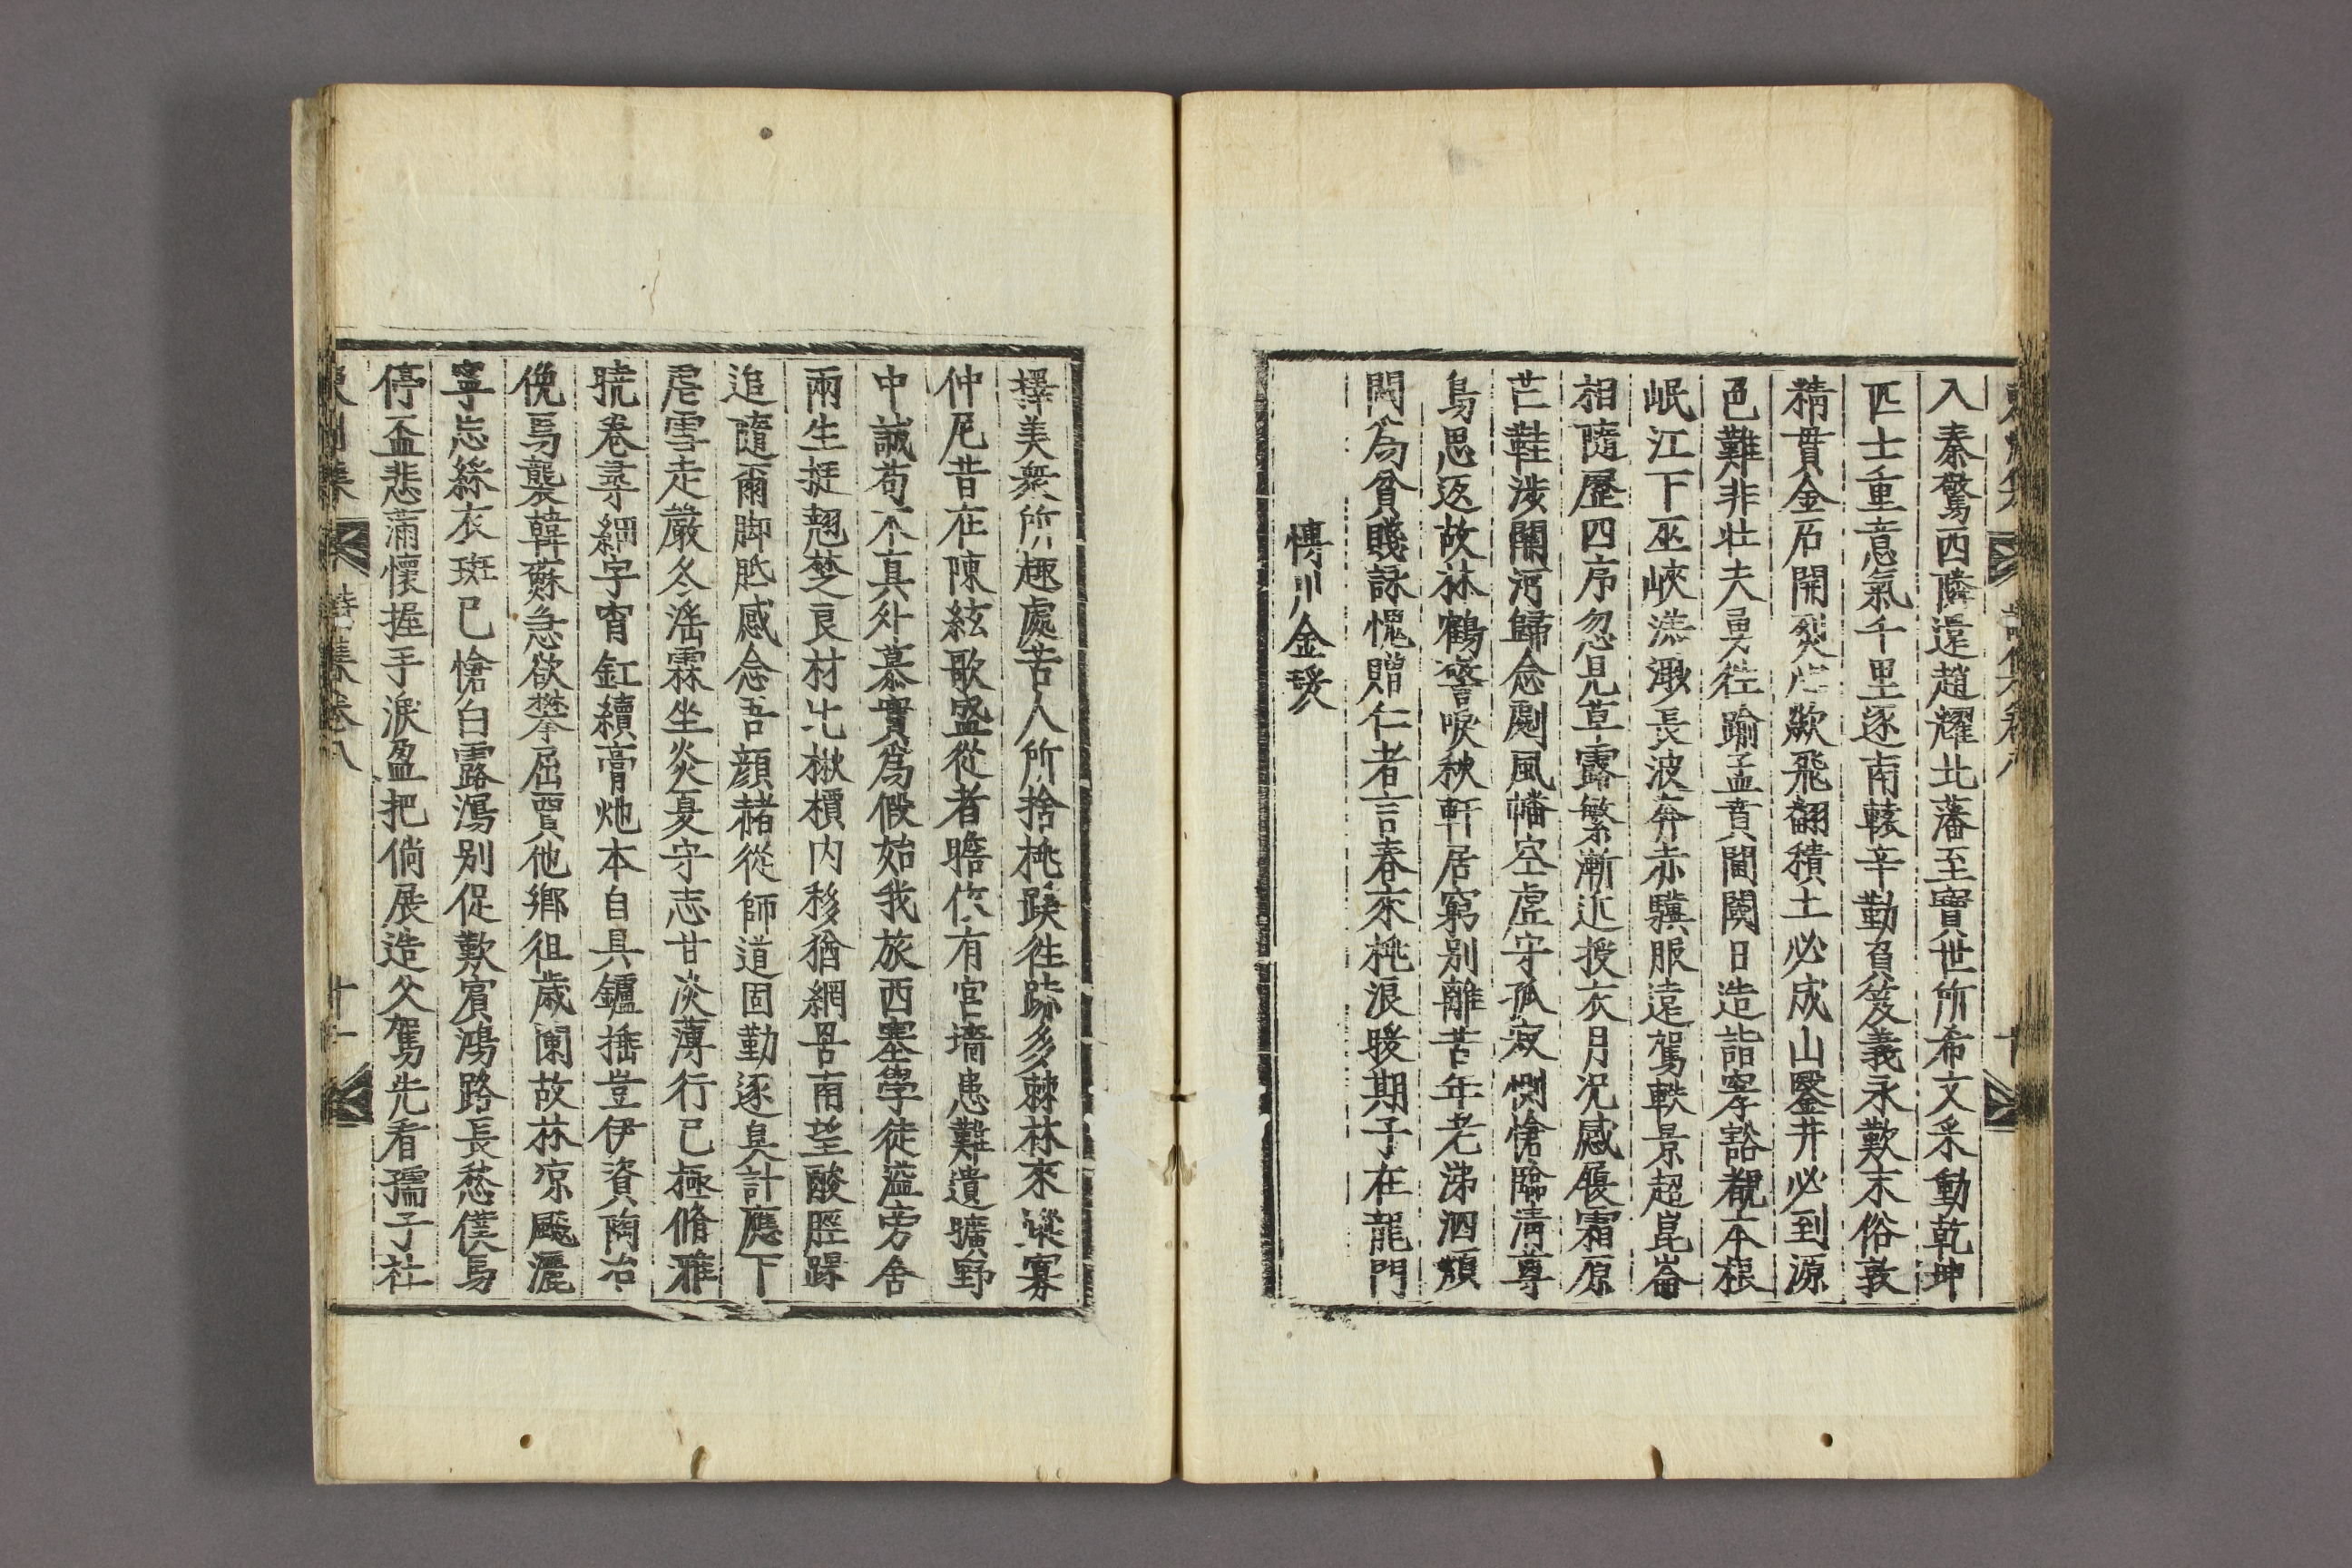 入秦驚西隣還趙耀北藩至寶世所希文采動乾坤
匹士重意氣千里逐南轅辛勤負笈義永歎末俗敦
精貫金石開烈心歘飛翻積土必成山鑿井必到源
色難非壯夫勇徃踰孟賁閫闑日造詣窂豁覩本根
岷江下巫峽漭瀄長波奔赤驥服遠駕軼景超崑崙
相隨歷四序忽見草露繁漸近授衣月況感履霜原
芒鞋涉關河歸念颺風幡空虛守孤寂惻愴臨清尊
鳥思返故林鶴警唳秋軒居窮別離苦年老涕泗頻
閑為貧賤詠愧贈仁者言春來桃浪暖期子在龍門
慱川金瑗
擇美衆所趣處苦人所捨桃蹊徃跡多棘林來躅寡
仲尼昔在陳絃歌盛從者瞻依有宮墻患難遺曠野
中誠苟不真外慕實爲假始我旅西塞學徒溢旁舍
兩生挺翹楚良材比楸檟内移猶網罟南望酸脛踝
追隨爾脚胝感念吾顔赭從師道固勤逐臭計應下
虐雪走嚴冬滛霖坐炎夏守志甘淡薄行己極脩雅
曉卷尋細字宵缸續膏灺本自具鑪捶豈伊資陶冶
俛焉襲韓蘇急欲攀屈賈他鄉徂歲闌故林凉飇灑
寧忘綵衣斑已愴白露瀉別促歎賓鴻路長愁僕馬
停盃悲滿懷握手淚盈把倘展造父駕先看孺子社
集
詩集卷八
十一